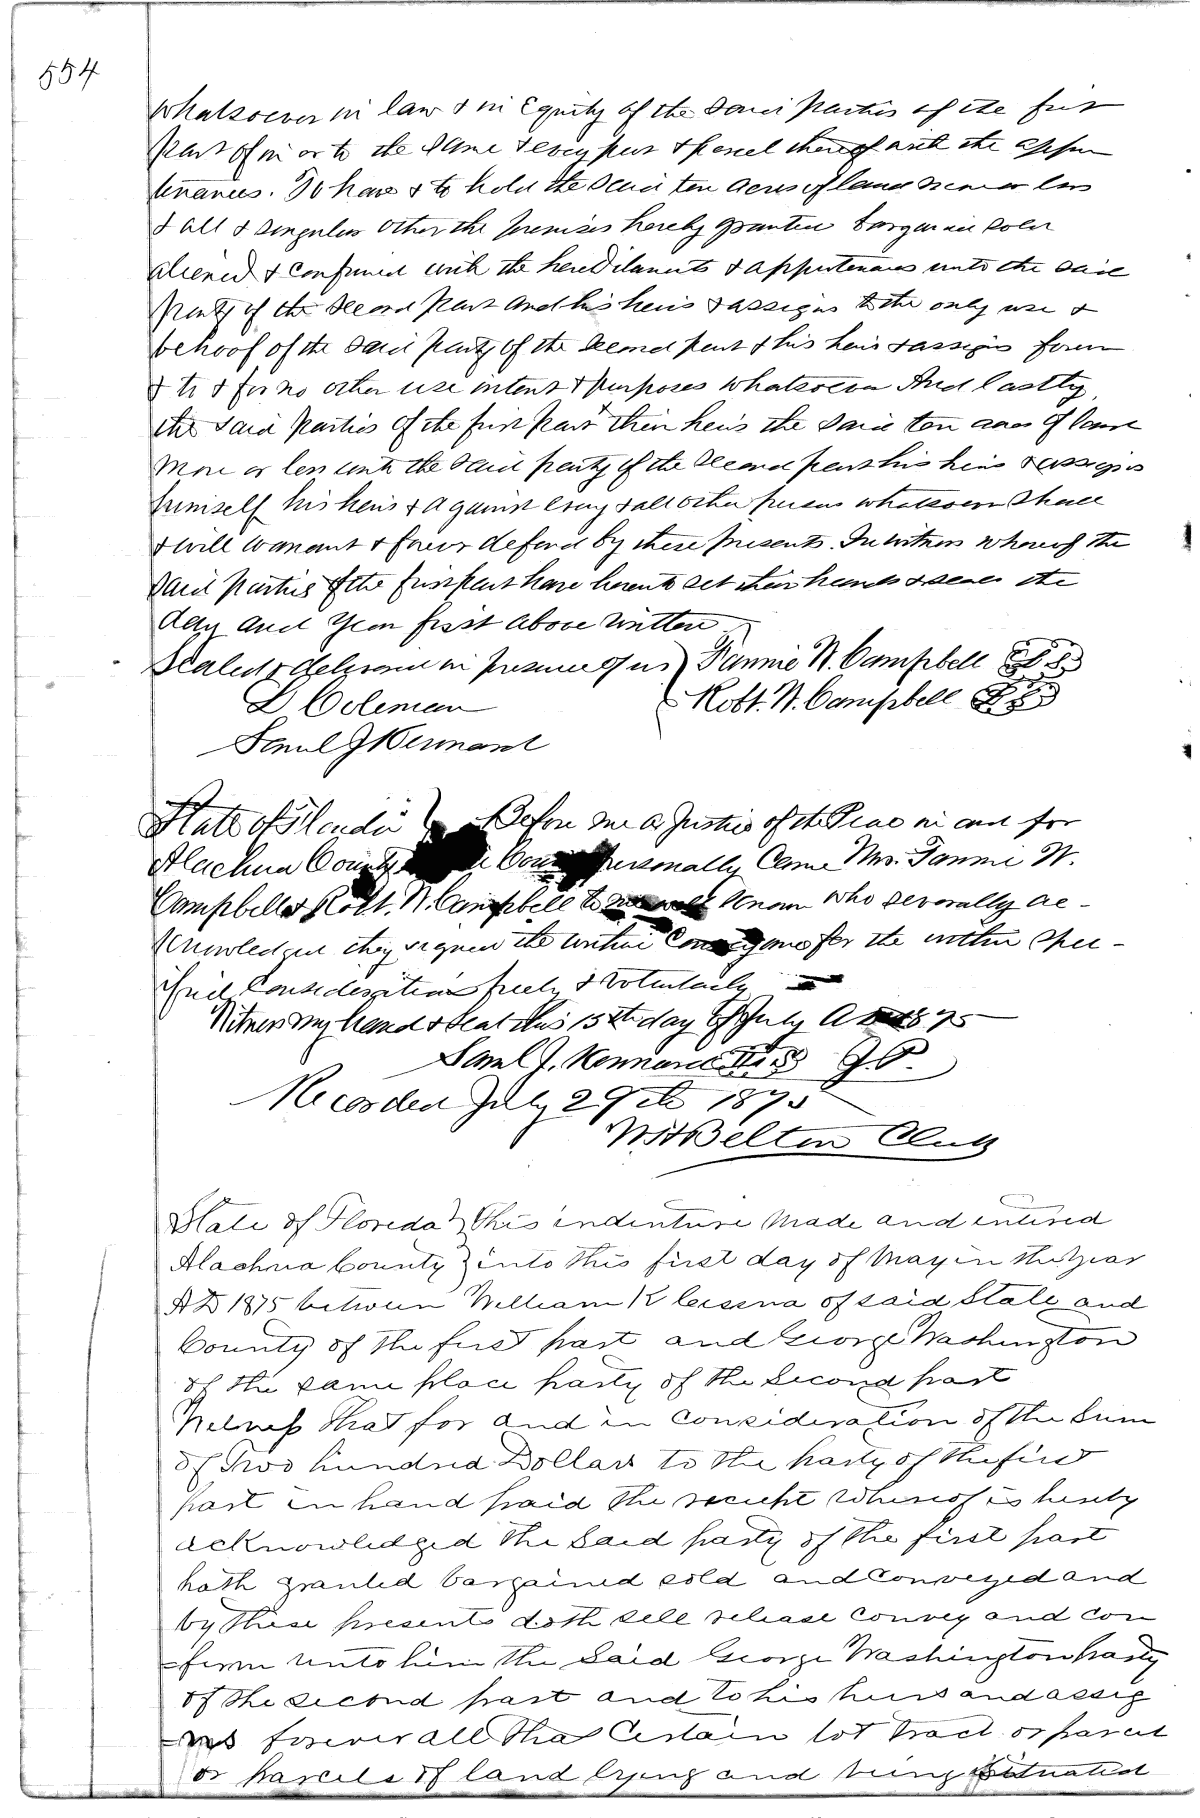 554
Whatsoever in law & in Equity of the said parties of the first
part of in or to the same & every part & parcel thereof with the appur
tenances. To have & to hold the said ten acres of land more or less
& all & singular other the premises hereby granted bargained sold
aliened & confirmed with the hereditaments & appurtenances unto the said
party of the second part and his heirs & assigns to the only use &
behoof of the said party of the second part & his heirs & assigns forever
& to & for no other use intent & purposes whatsoever And lastly
the said parties of the first part their heirs the said ten acres of land
more or less unto the said party of the second part his heirs & assigns
himself his heirs & against every & all other persons whatsoever shall
& will warrant & forever defend by these presents. In witness whereof the
said parties of the first part have hereunto set their hands & seals the
day and year first above written
Sealed & delivered in presence of us } Fannie N. Campbell L S
D Coleman { Robt. N. Campbell L S
Saml J Kennard
State of Florida } Before me a Justice of the Peace in and for
Alachua County personally Came Mrs. Fannie N.
Campbell & Robt. N. Campbell to me well known who severally ac-
knowledged they signed the within conveyance for the within spec-
ified Consideration freely & voluntarily
Witness my hand & seal this 15th day of July A D 1875
Saml J. Kennard L S J.P.
Recorded July 29th 1875
W. H Belton Clerk
State of Florida } This indenture made and entered
Alachua County } into this first day of May in the year
A D 1875 between William K Cessna of said State and
County of the first part and George Washington
of the same place party of the Second part
Witness that for and in consideration of the Sum
of Two hundred Dollars to the party of the first
part in hand paid the reciept whereof is hereby
acknowledged the Said party of the first part
hath granted bargained sold and conveyed and
by these presents doth sell release convey and con
=firm unto him the Said George Washington party
of the second part and to his heirs and assig
=ns forever all that Certain lot tract or parcel
or parcels of land lying and being Situated